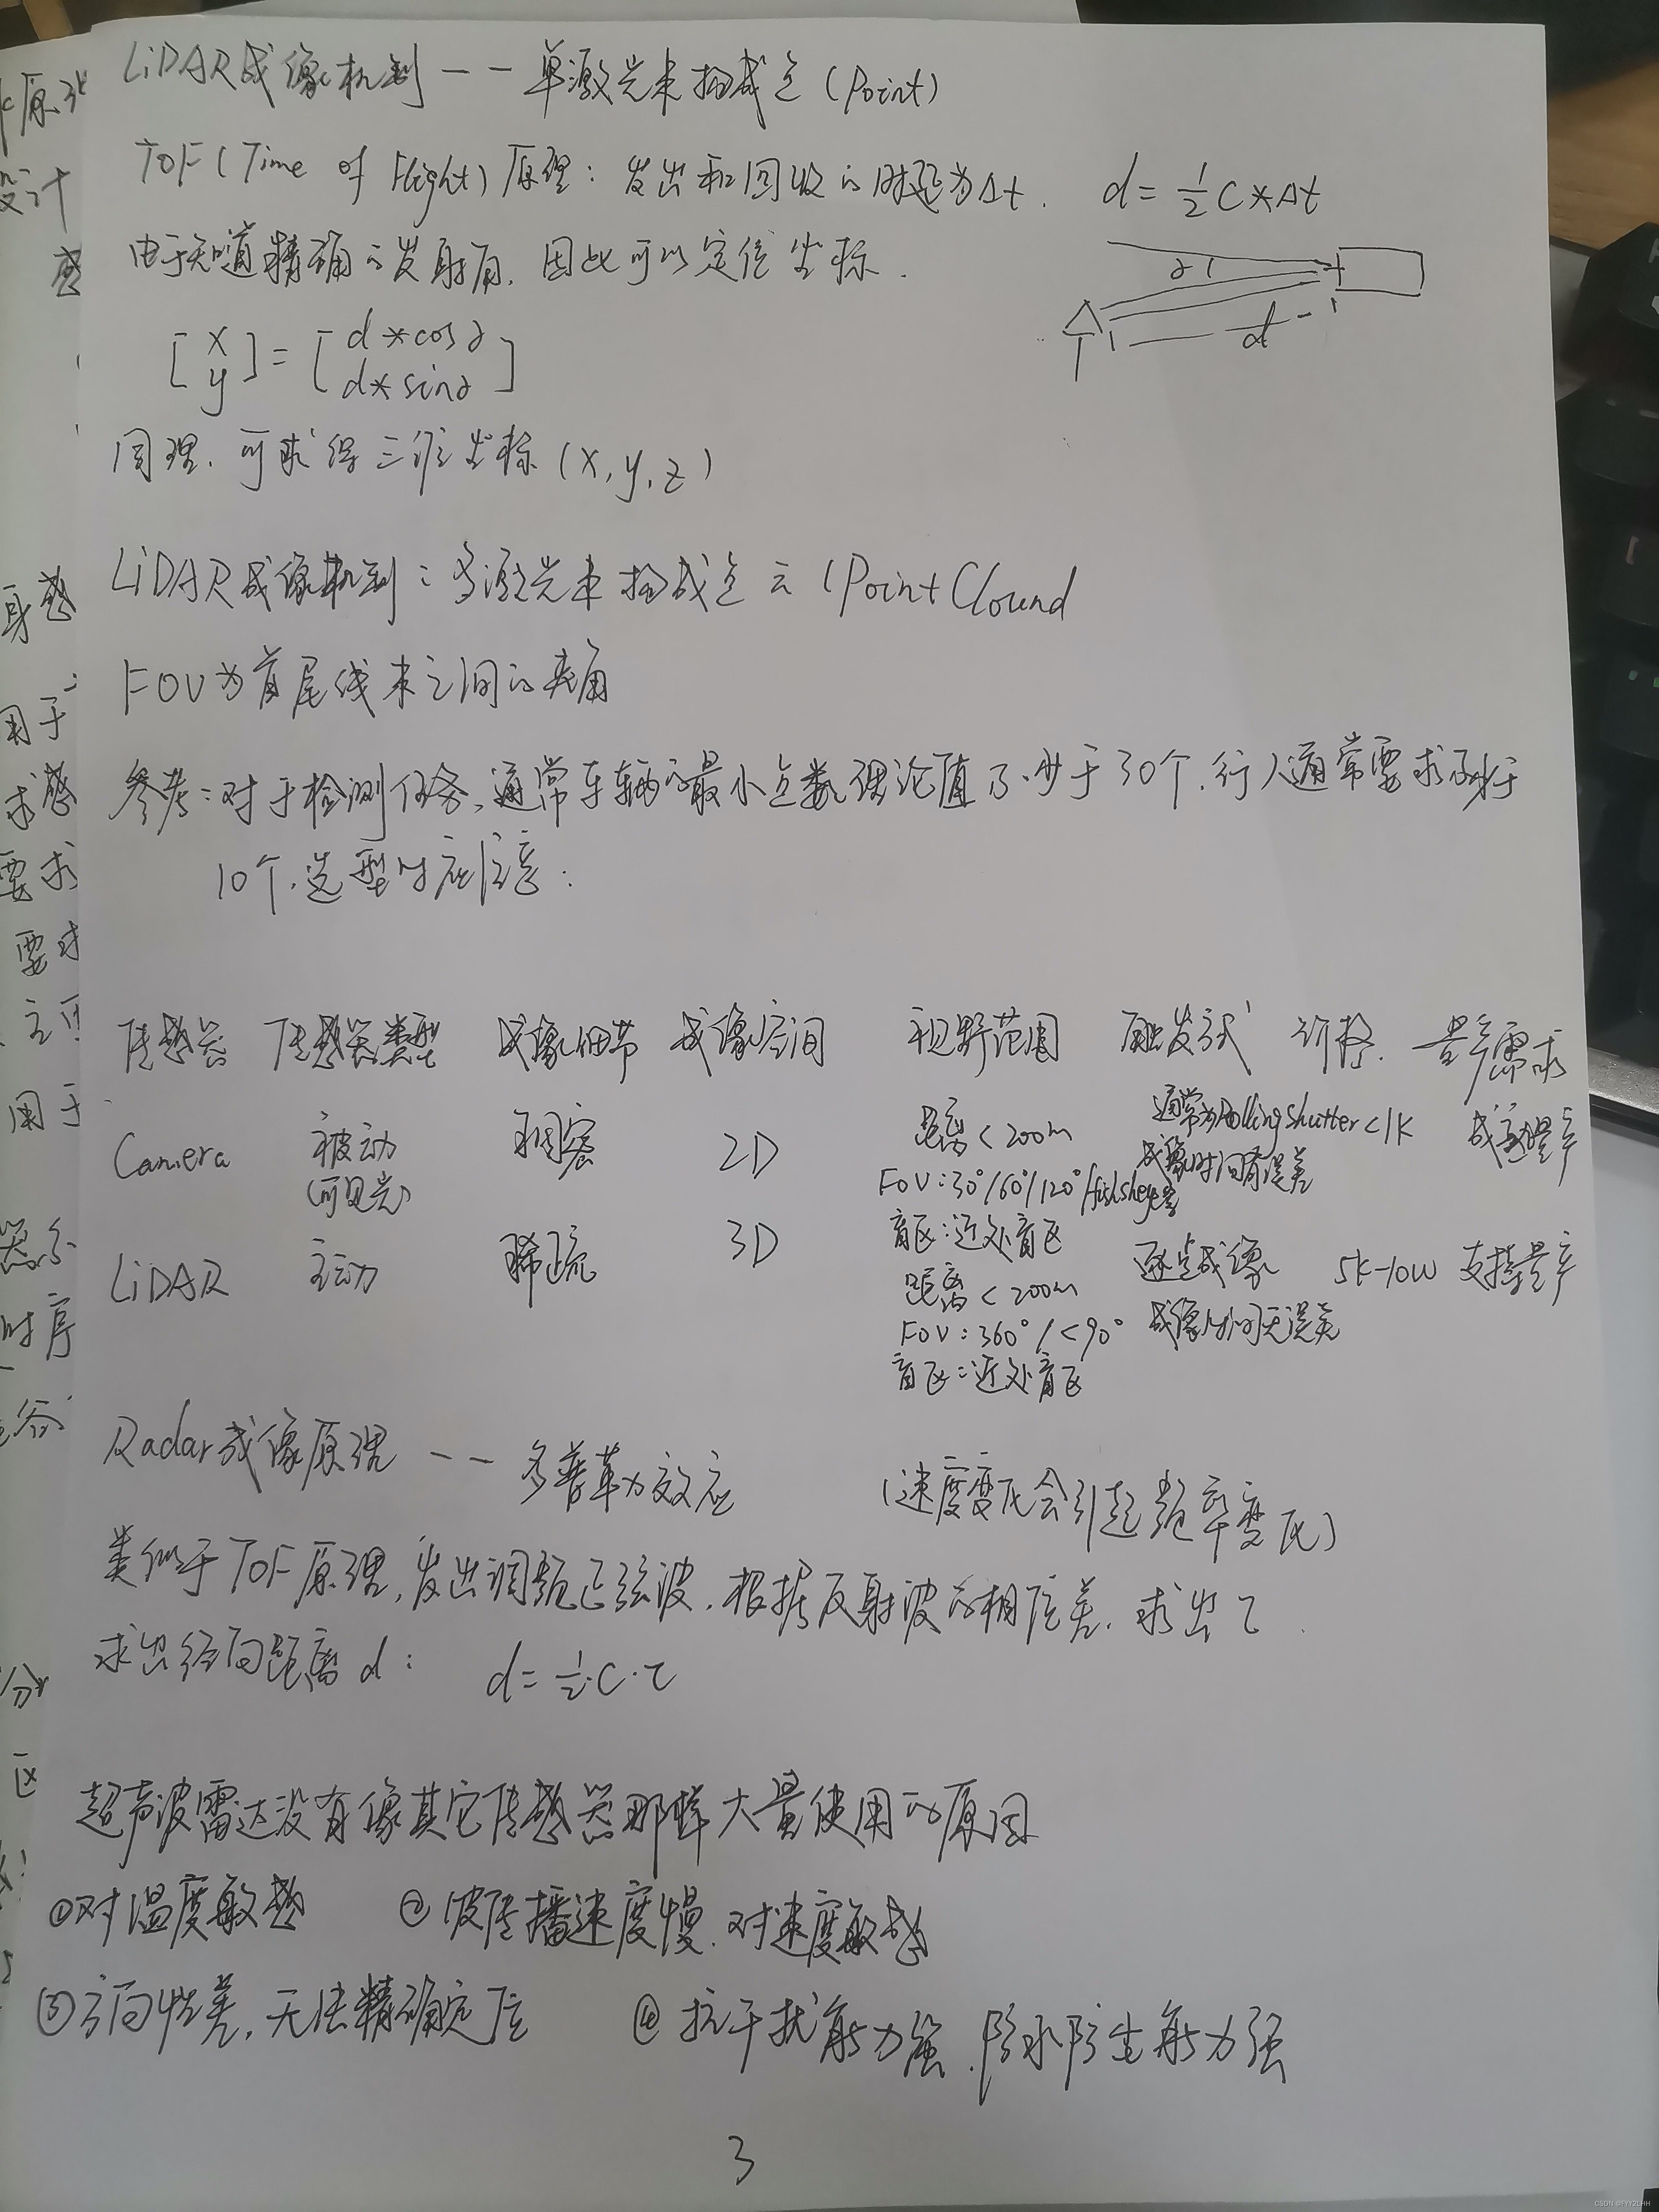 LiDAR成像机制——单激光束扫成点(Point)
TOF(Time of Flight)原理：发出和回收的时延为Δt. d=½C*Δt
由于知道精确的发射角，因此可以定位坐标.
[x y]=[d*cosα d*sinα]
α
d
同理，可求得三维坐标(x,y,z)
LiDAR成像机制：多激光束扫成点云(PointClound
FOV为首尾线束之间的夹角
参考：对于检测任务，通常车辆的最小点数理论值不少于30个，行人通常要求不少于
10个，选型时应注意.
传感器 传感器类型 成像细节 成像空间 视野范围 触发方式 价格 量产需求
Camera 被动 稠密 2D 距离<200m 通常为RollingShutter <1K 成熟量产
(可见光) FOV:30°/60°/120°/fisheye等 成像时间有误差
盲区:近处盲区
LiDAR 主动 稀疏 3D 距离<200m 逐点成像 5K-10W 支持量产
FOV:360°/<90° 成像时间无误差
盲区:近处盲区
Radar成像原理——多普勒效应 (速度变化会引起频率变化)
类似于TOF原理，发出调频正弦波，根据反射波的相位差，求出τ.
求出径向距离d： d=½·C·τ
超声波雷达没有像其它传感器那样大量使用的原因
①对温度敏感 ②波传播速度慢，对速度敏感
③方向性差，无法精确定位 ④抗干扰能力强，防水防尘能力强
3
用于
求感
要求
要求
用于
时序
设计
感
身感
区
CSDN @YY2LHH